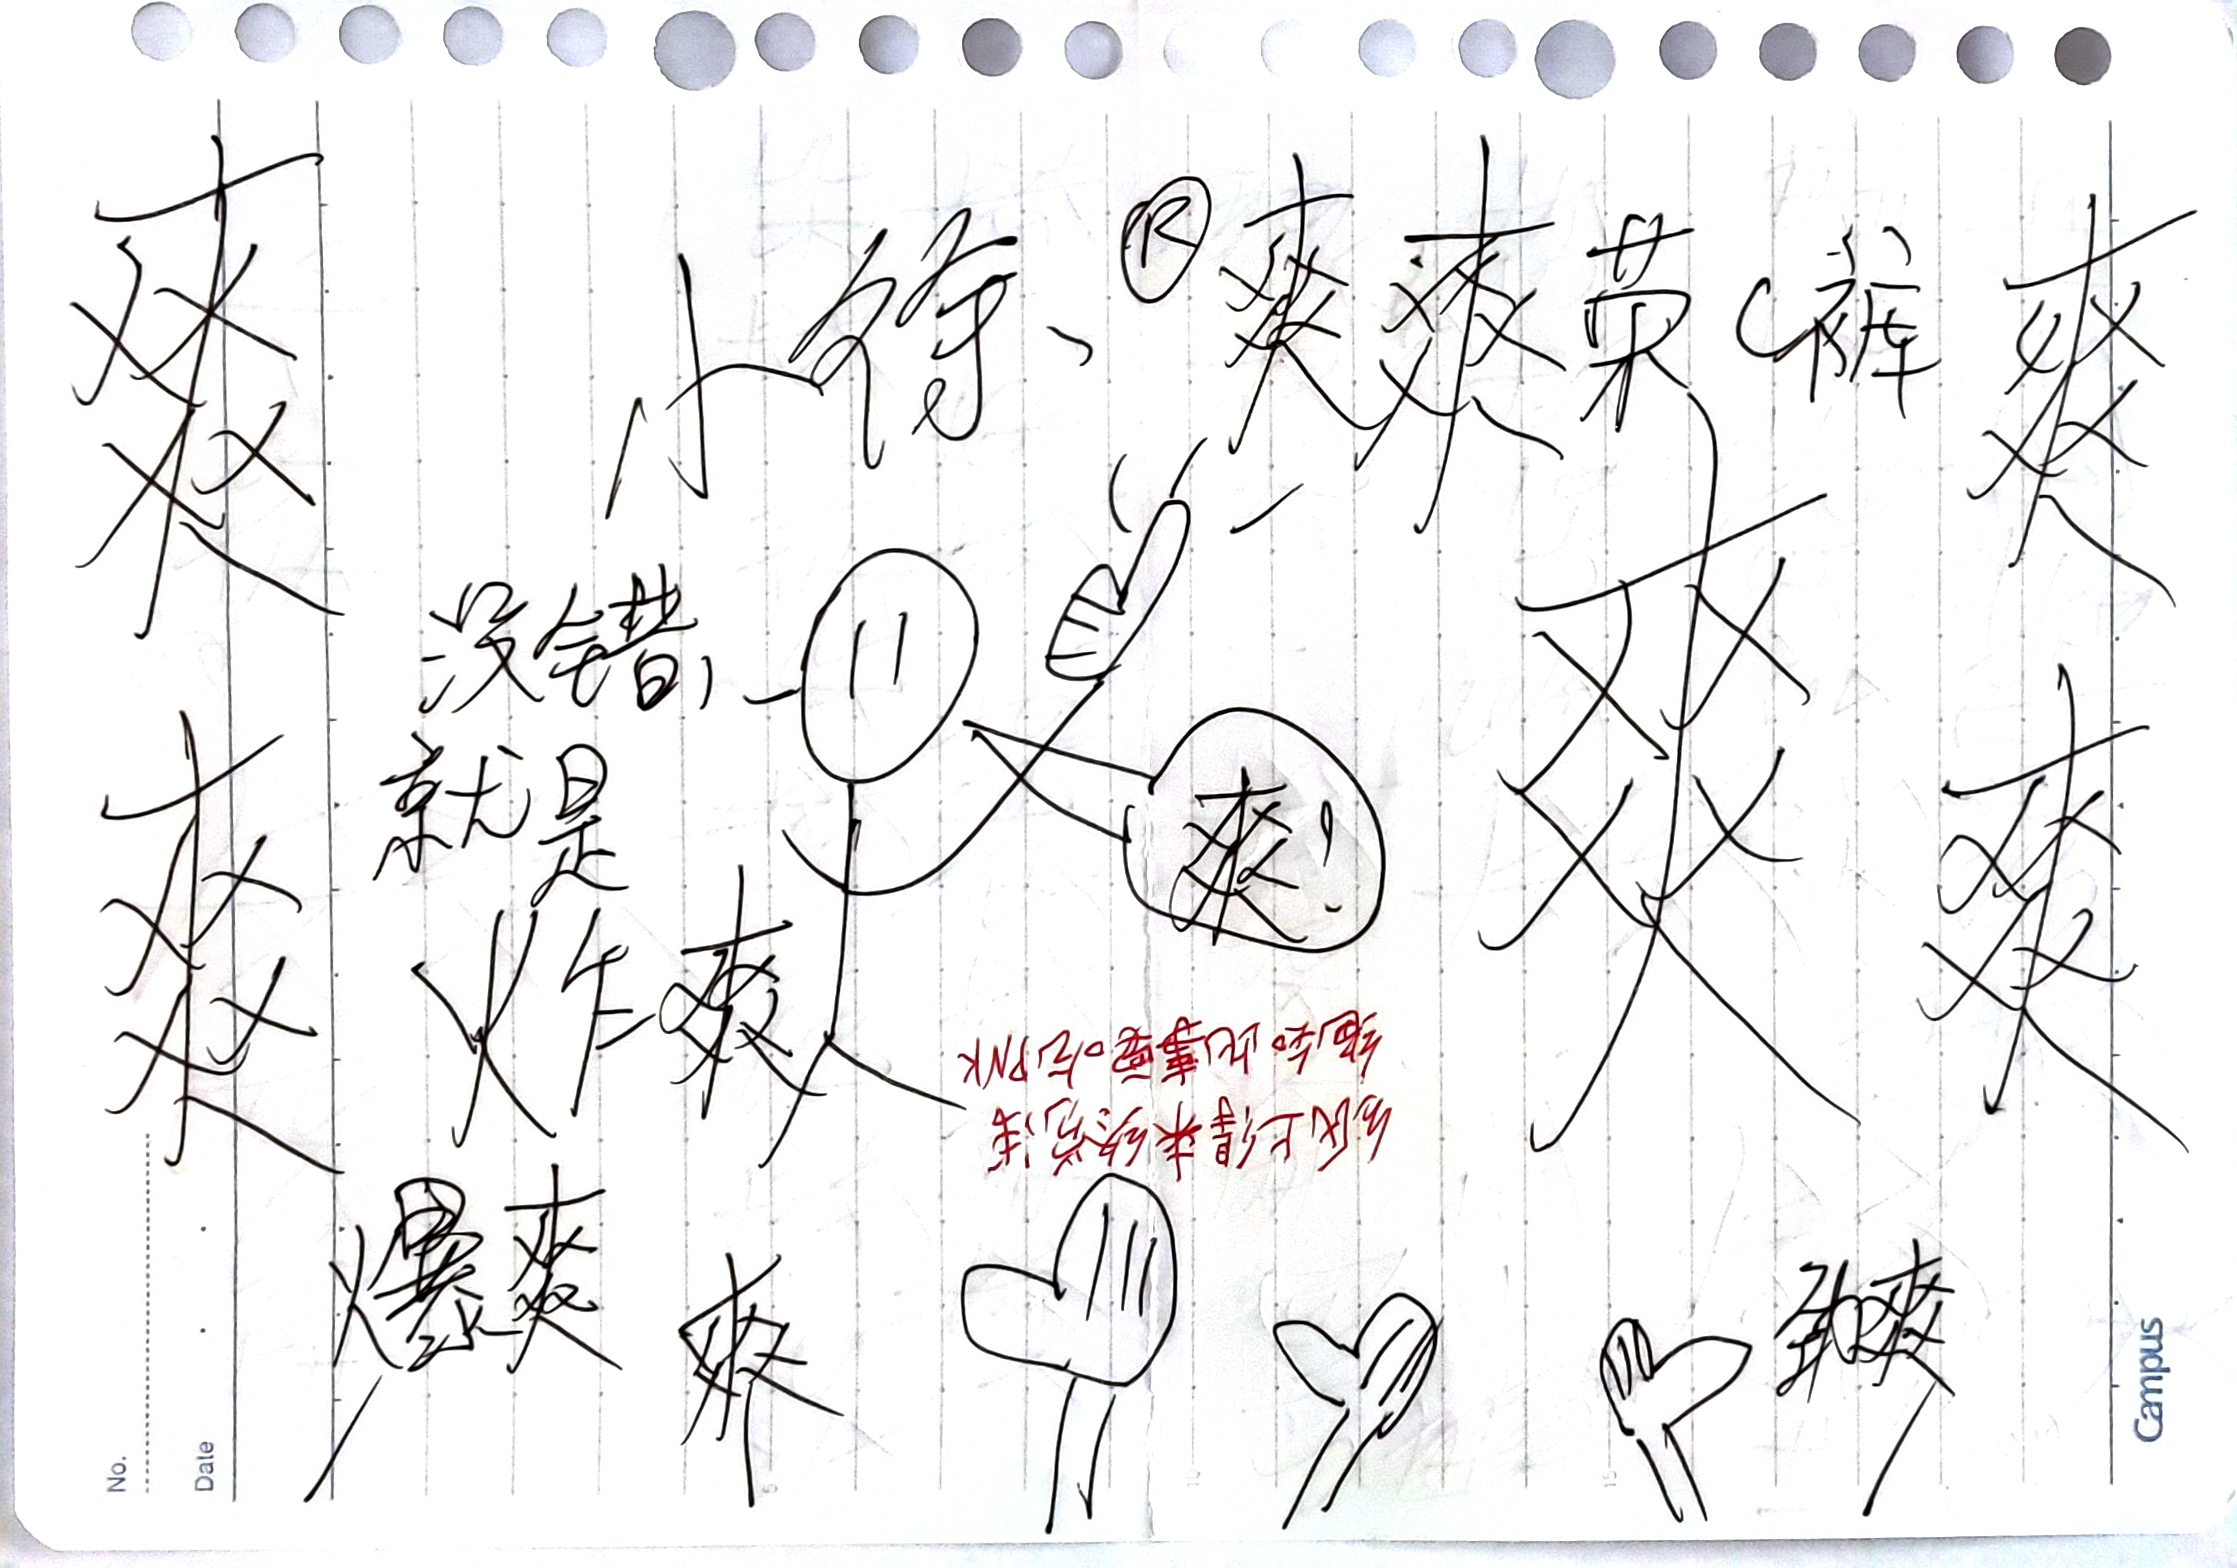 爽
小
®爽爽
裤
爽
没错,
就是
炸爽
爽!
爽
爽
爽
爽
纸上得来终觉浅
绝知此事要吃PNK
爆爽
爽
劲爽
No.
Date
Campus